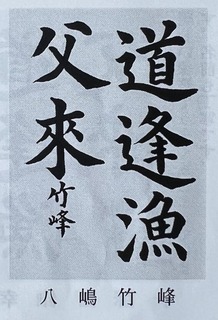 道逢漁
父來
竹峰
八嶋竹峰